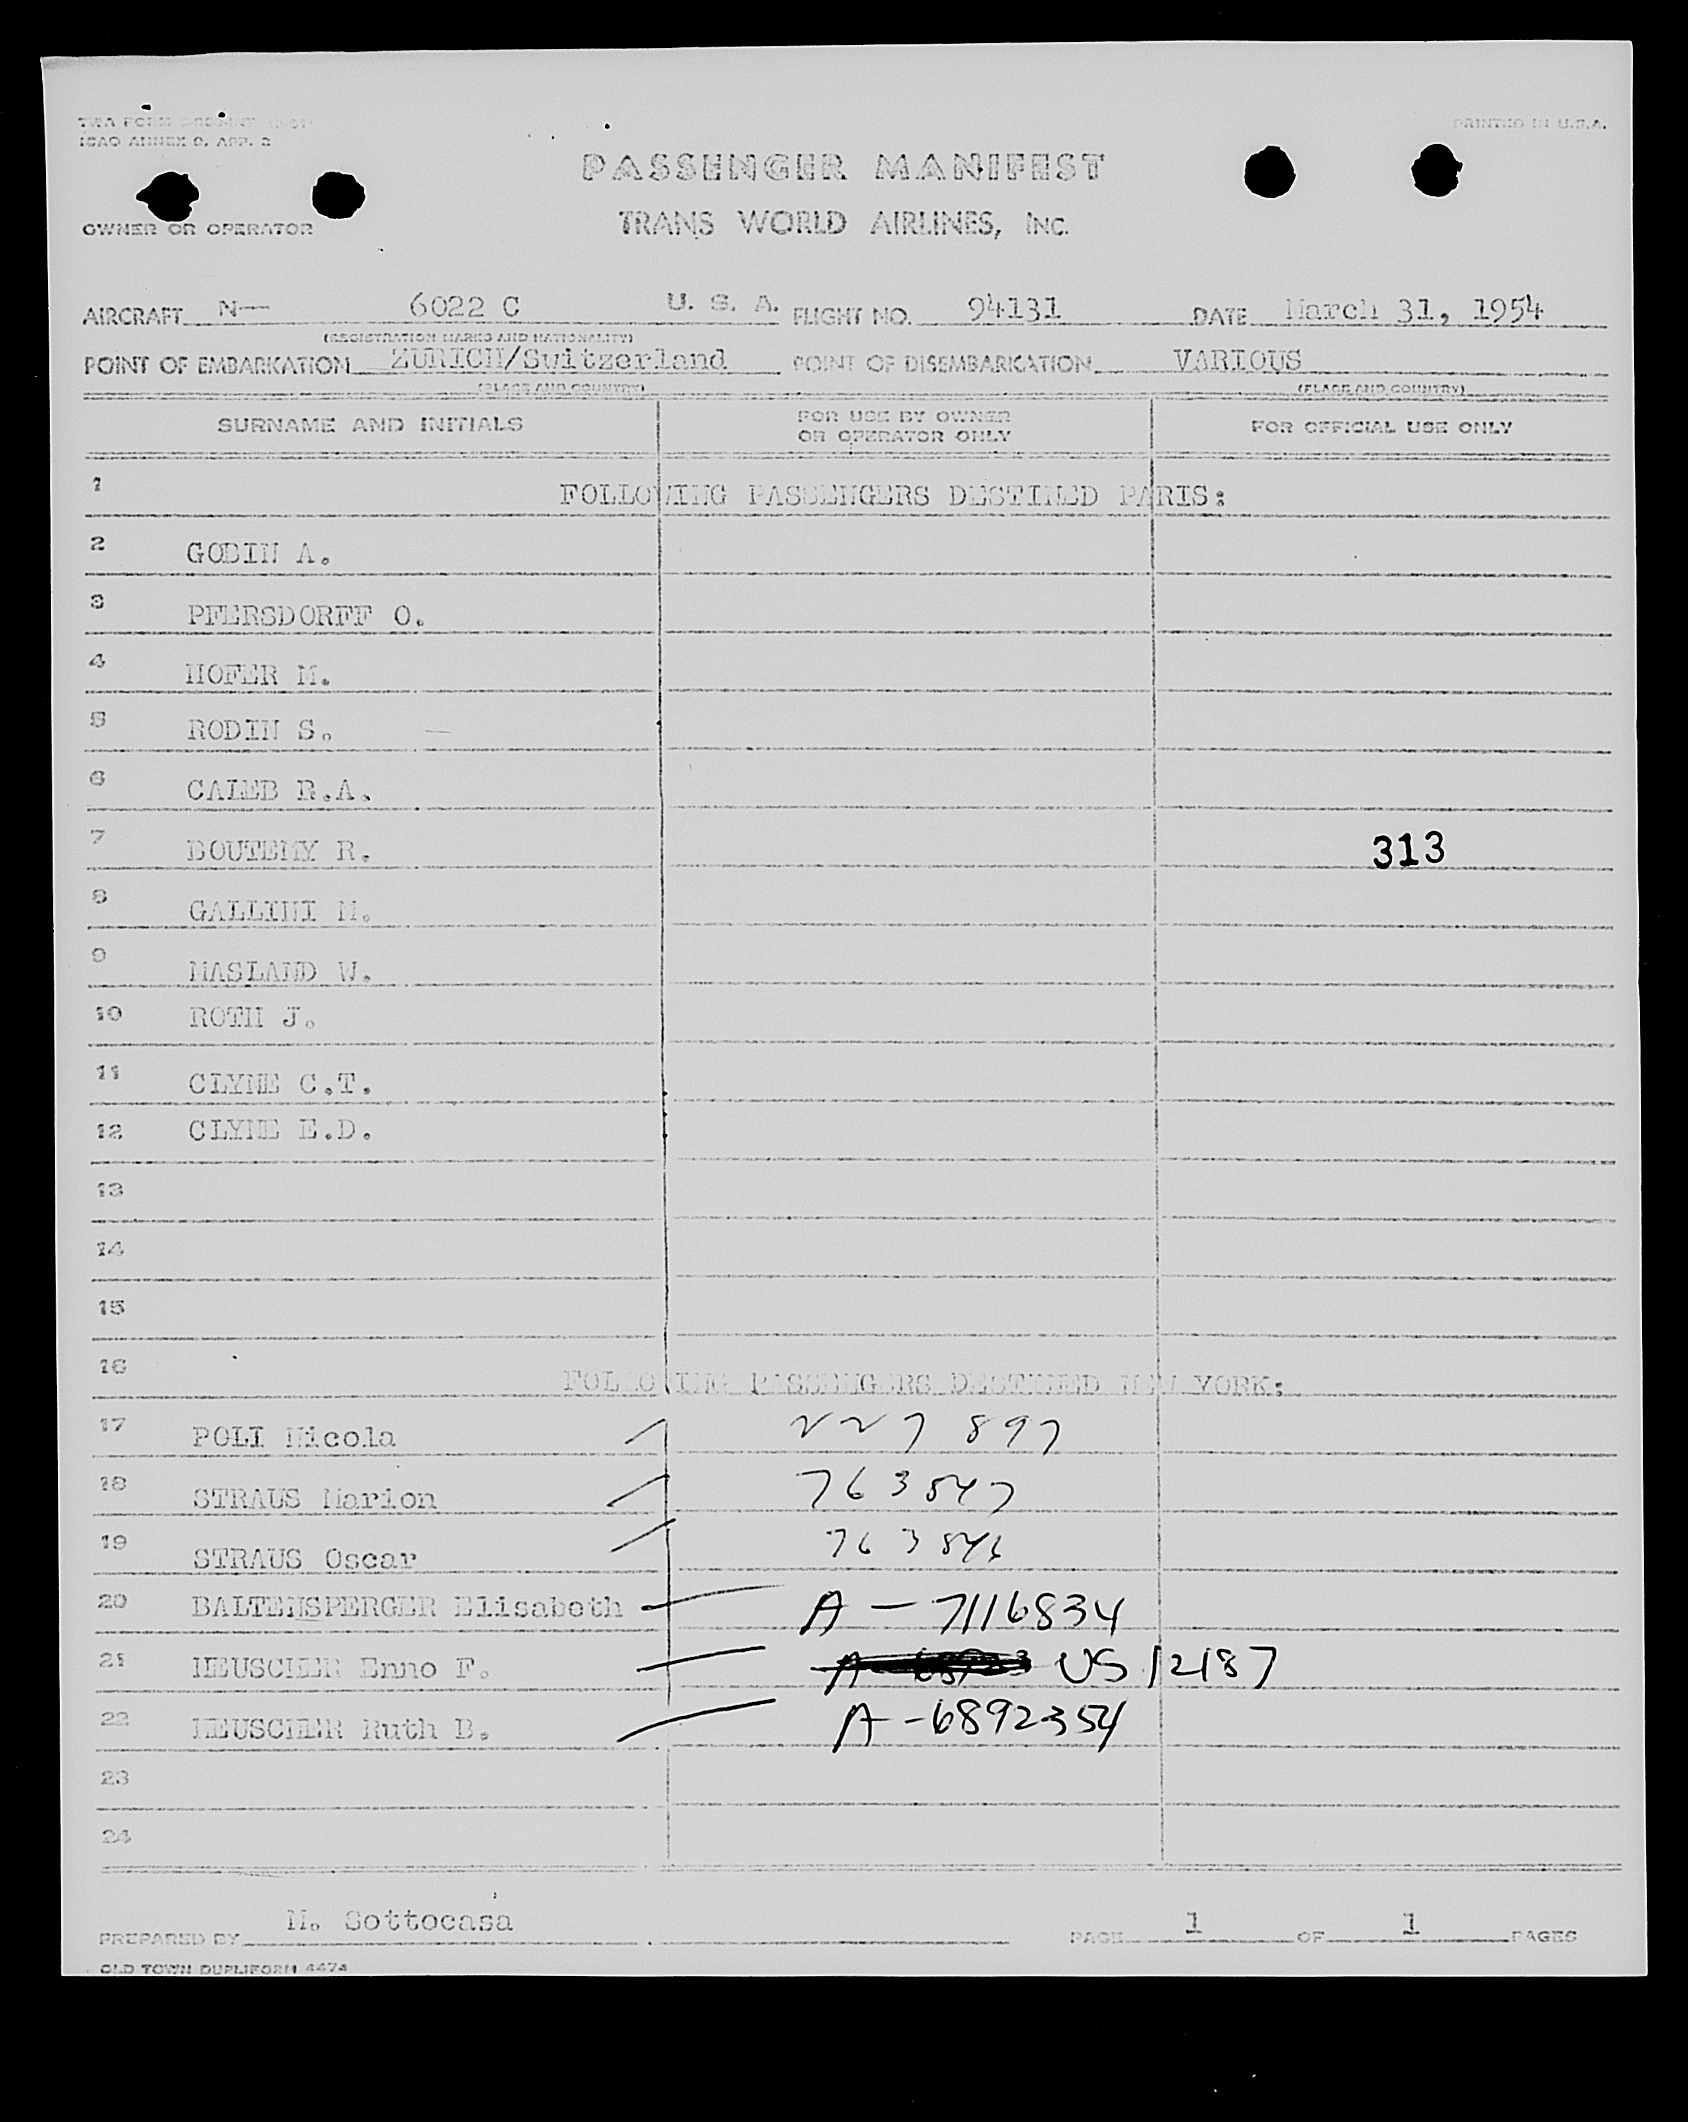 TWA FORM
ICAO ANNEX 9, APP. 2
PRINTED IN U.S.A.
PASSENGER MANIFEST
OWNER OR OPERATOR
TRANS WORLD AIRLINES, INC.
AIRCRAFT N— 6022 C U. S. A. FLIGHT NO. 94131 DATE March 31, 1954
(REGISTRATION MARKS AND NATIONALITY)
POINT OF EMBARKATION ZURICH/Switzerland POINT OF DISEMBARKATION VARIOUS
(PLACE AND COUNTRY) (PLACE AND COUNTRY)
SURNAME AND INITIALS FOR USE BY OWNER OR OPERATOR ONLY FOR OFFICIAL USE ONLY
1 FOLLOWING PASSENGERS DESTINED PARIS:
2 GODIN A.
3 PFERSDORFF O.
4 HOFER M.
5 RODIN S.
6 CALEB R.A.
7 BOUTEMY R. 313
8 GALLINI M.
9 MASLAND W.
10 ROTH J.
11 CLYNE C.T.
12 CLYNE E.D.
13
14
15
16 FOLLOWING PASSENGERS DESTINED NEW YORK:
17 POLI Nicola 227 897
18 STRAUS Marion 763847
19 STRAUS Oscar 763846
20 BALTENSPERGER Elisabeth A - 7116834
21 HEUSCHER Enno F. US 12187
22 HEUSCHER Ruth B. A - 6892354
23
24
PREPARED BY M. Sottocasa PAGE 1 OF 1 PAGES
OLD TOWN DUPLIFORM 4474